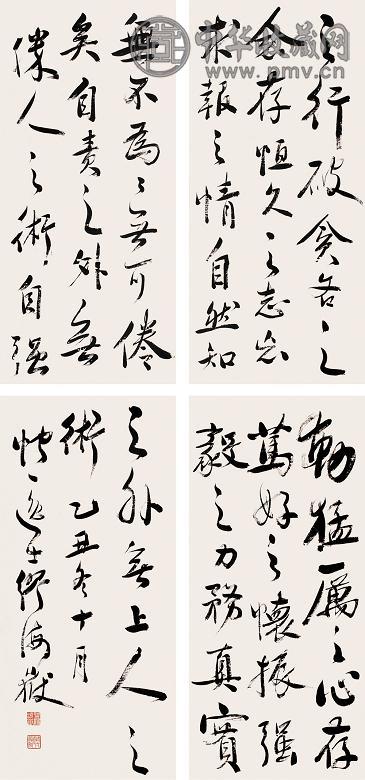 勤猛厲之心存
篤好之懷振强
毅之力務真實
之行破貪吝之
念存恒久之志忘
求報之情自然知
無不為〻無可倦
矣自責之外無
勝人之術自强
之外無上人之
術乙丑冬十月
逸生繆海嶽
中华收藏网
www.pmv.cn